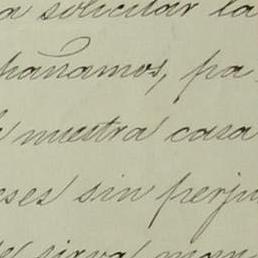 a solicitar la
pañamos, pa
nuestra casa
eses sin perju
sirva